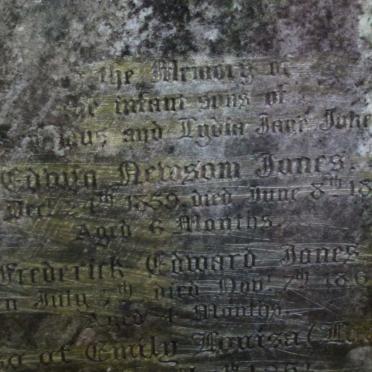 the Memory of
the infant sons of
and Lydia Jane
Edwin Newsom Jones.
Dec. 1859, died June 8th
Aged 6 Months.
Frederick Edward Jones
July died Nov. 7th 186
Aged 4 Months
of Emily Louisa